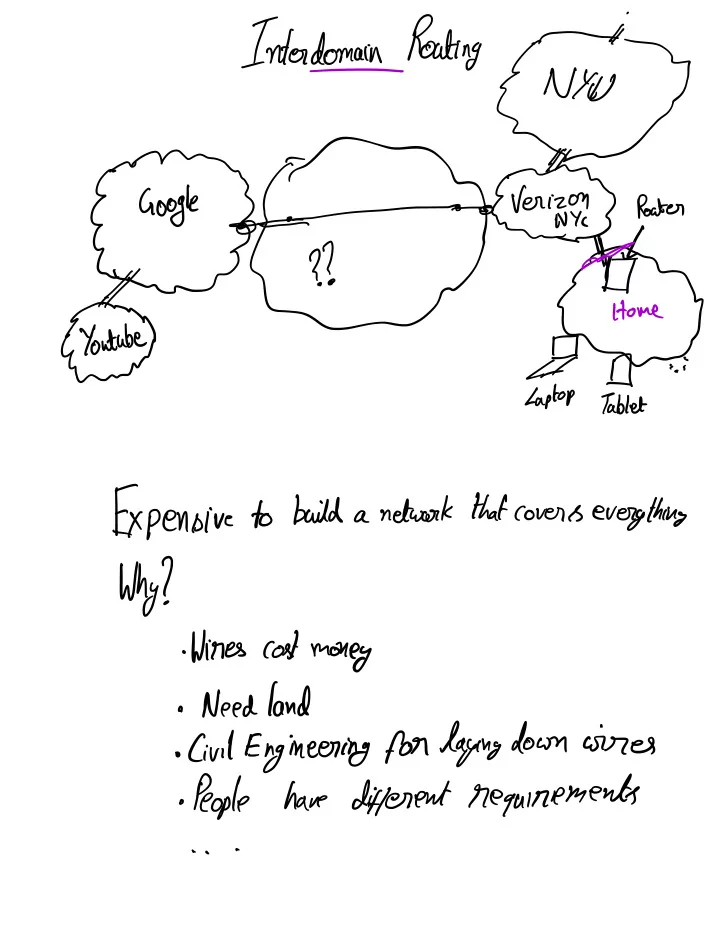 Interdomain Routing
NYU
Google
Verizon
NYC
Router
??
Home
Youtube
Laptop
Tablet
Expensive to build a network that covers everything
Why?
· Wires cost money
· Need land
· Civil Engineering for laying down wires
· People have different requirements
.. .